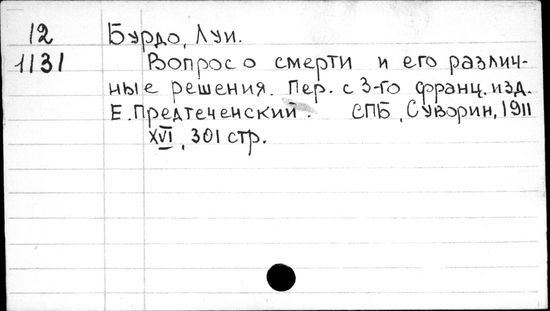 12 Бурдо, Луи.
1131 Вопрос о смерти и его различ-
ные решения. Пер. с 3-го франц. изд.
Е. Предтеченский. СПБ, Суворин, 1911
XVI, 301 стр.